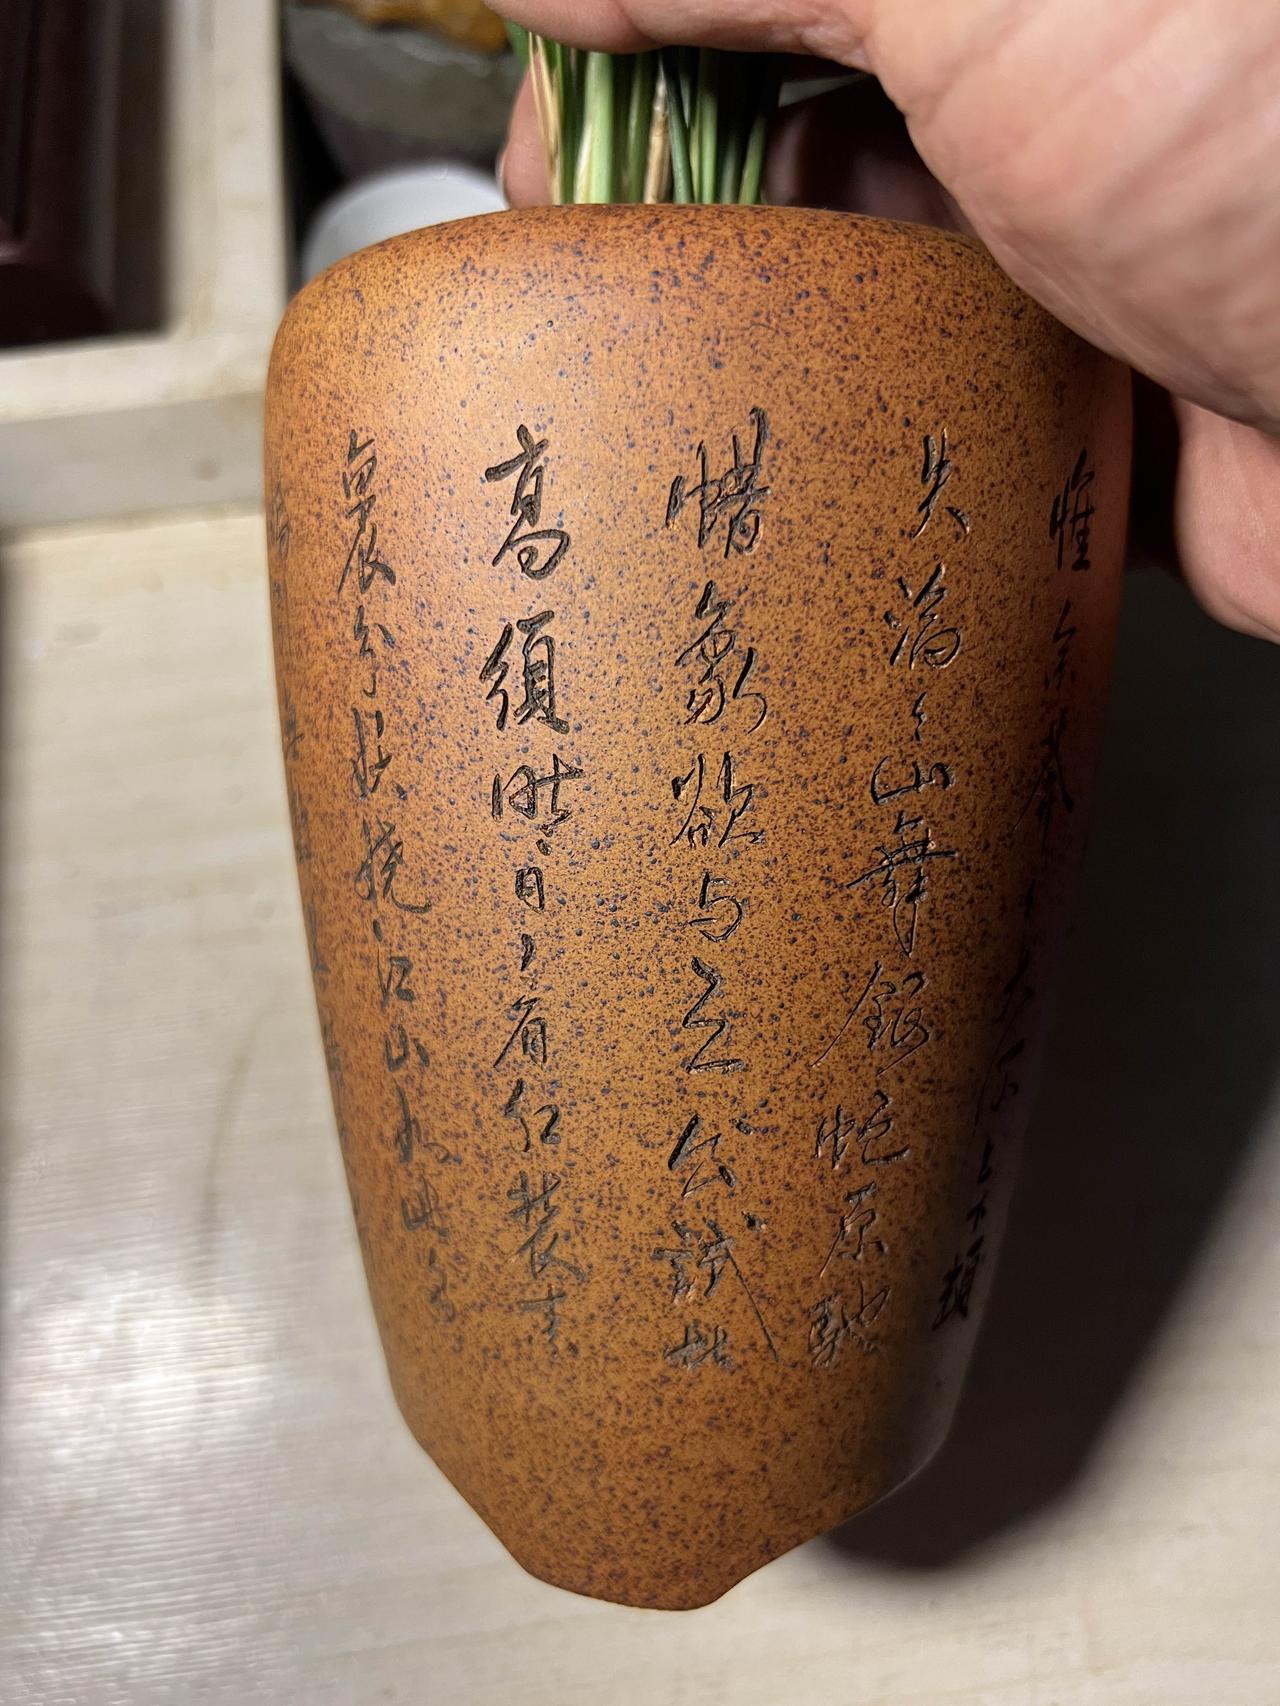 惟余莽々大河上下頓
失滔々山舞銀蛇原馳
蜡象欲与天公試比
高須晴日看红装素
裹分外妖娆江山如此多